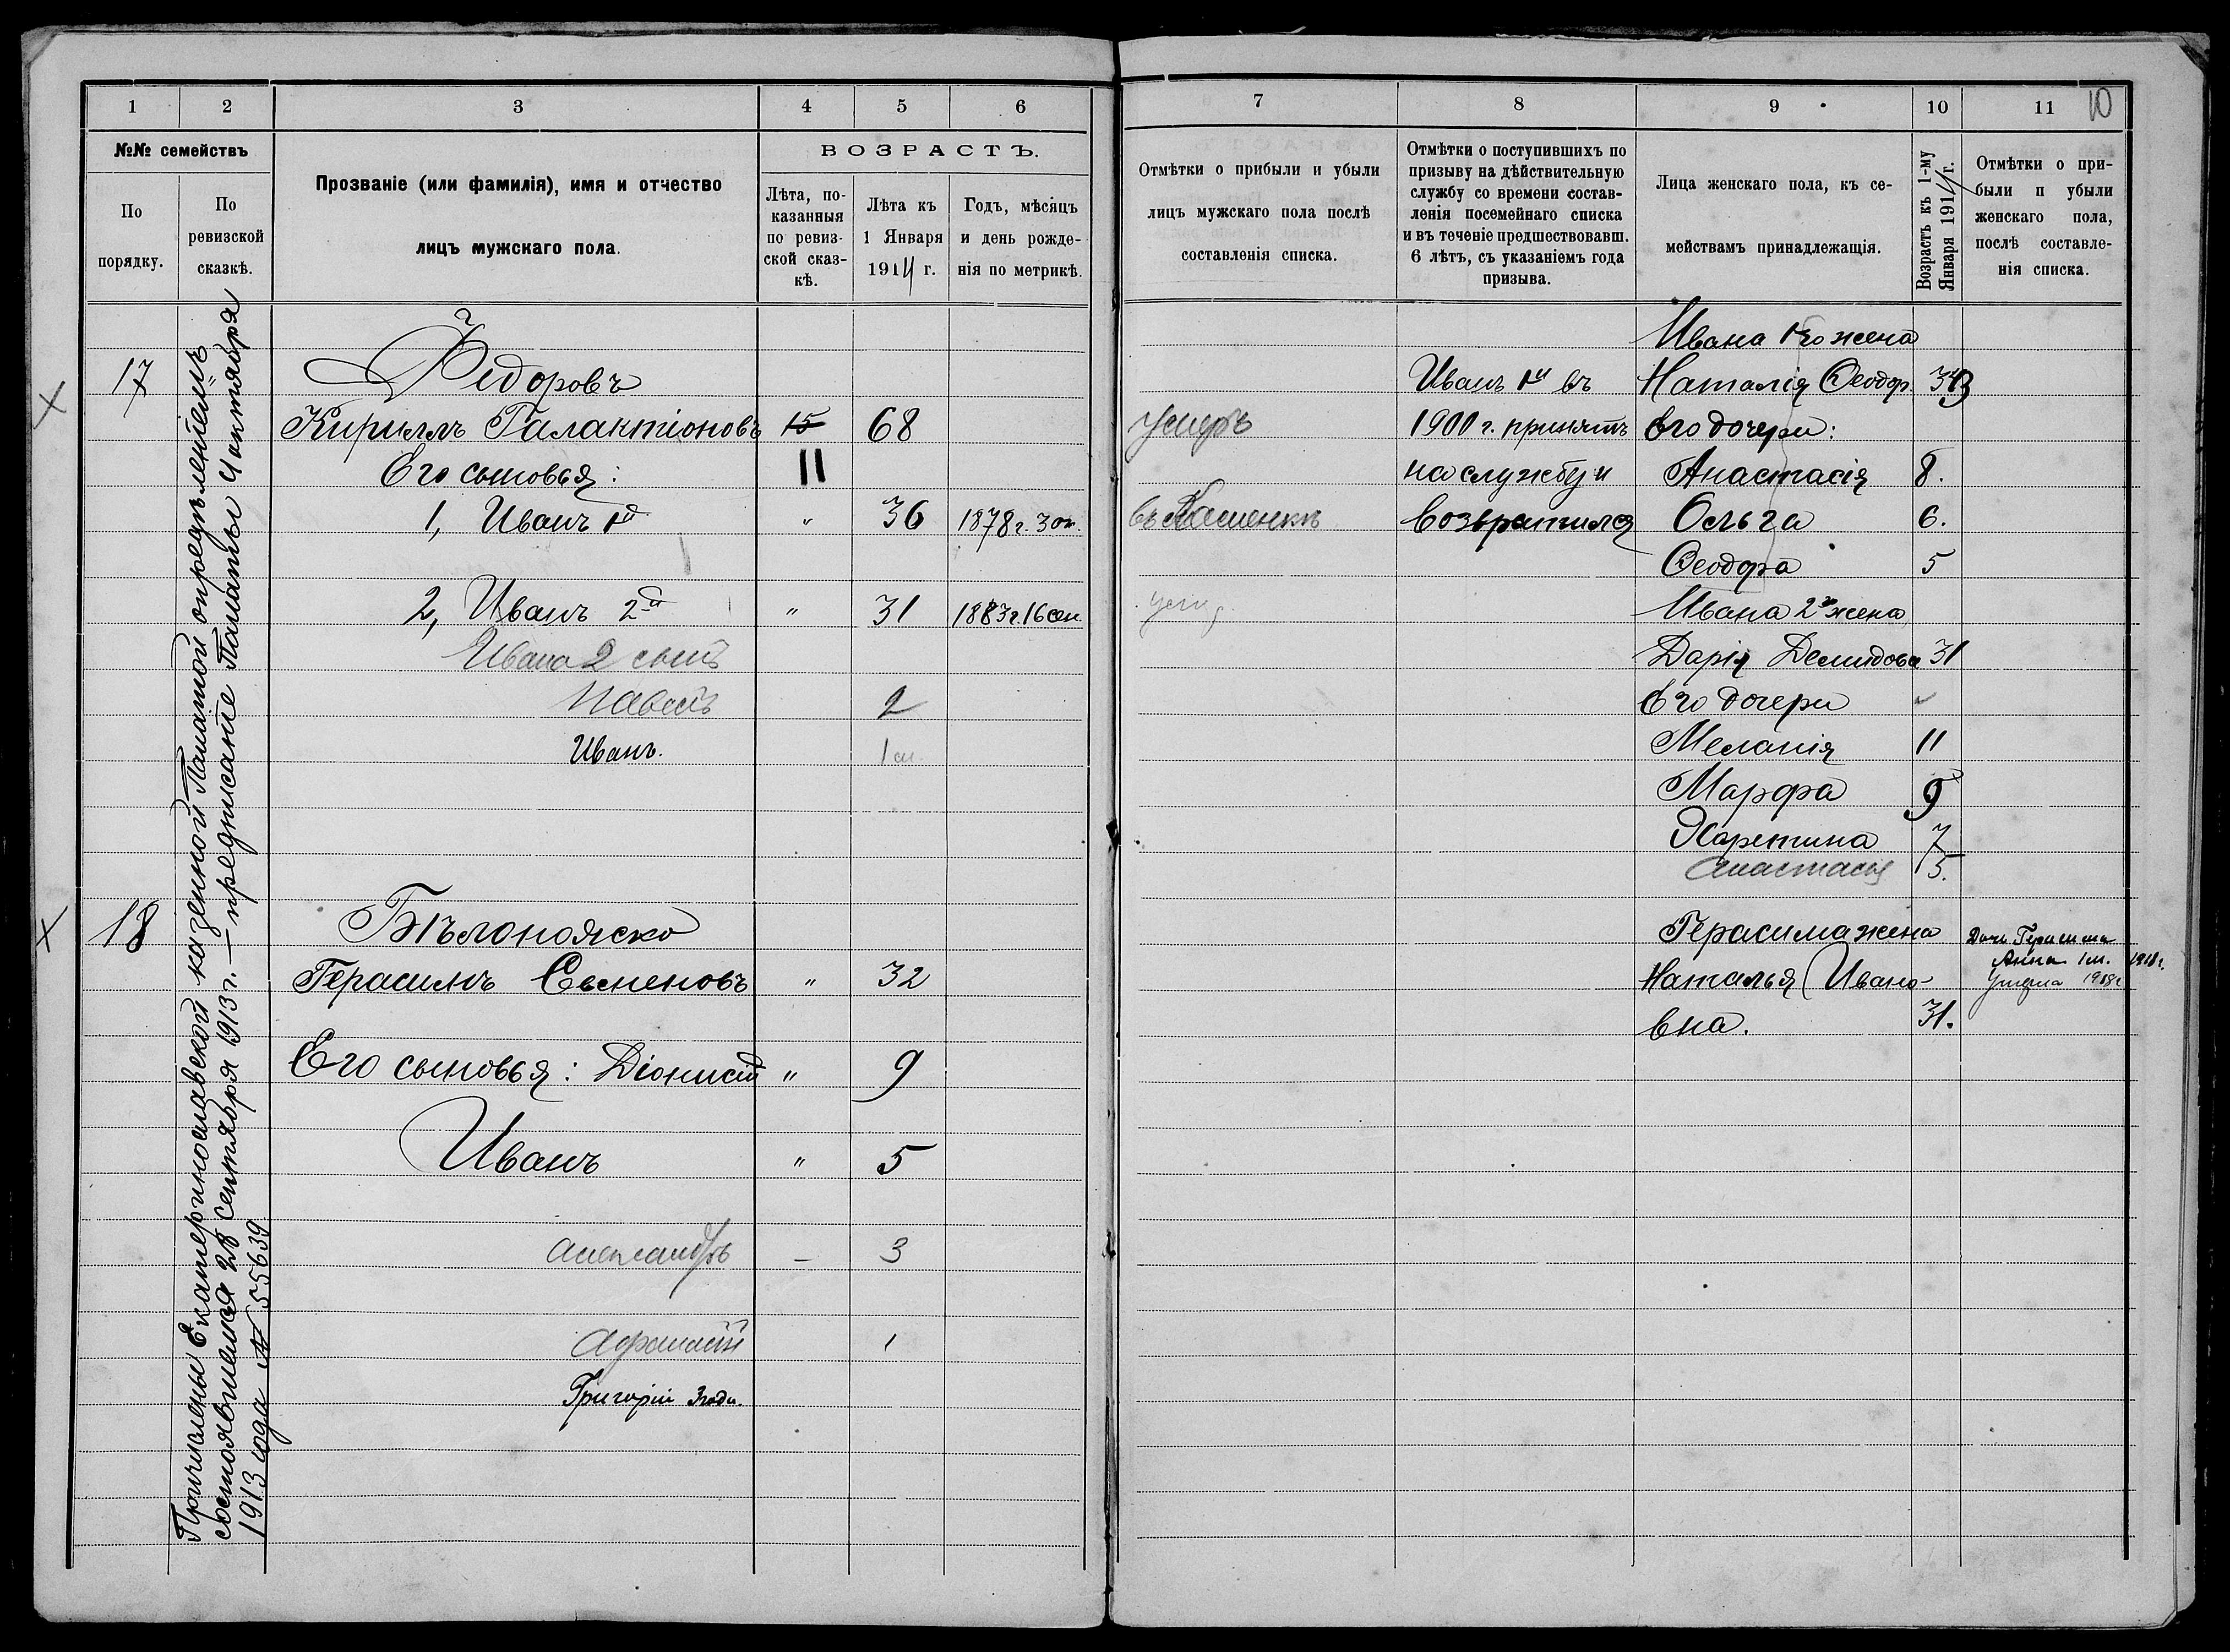 1 2 3 4 5 6
№№ семействъ
По порядку.
По ревизской сказкѣ.
Прозваніе (или фамилія), имя и отчество
лицъ мужскаго пола.
ВОЗРАСТЪ.
Лѣта, по-
казанныя
по ревиз-
ской сказ-
кѣ.
Лѣта къ
1 Января
1914 г.
Годъ, мѣсяцъ
и день рожде-
нія по метрикѣ.
Причислены Екатеринославской казенной Палатой опредѣленіемъ
состоявшемся 28 сентября 1913 г. — предписаніе Палаты
1913 года № 55639
17 Федоровъ
Кириллъ Галактіоновъ 15 68
Его сыновья: 11
1, Иванъ 1й " 36 1878 г. 3 ок.
2, Иванъ 2й " 31 1883 г. 16 сен.
Ивана 2 сынъ
Павелъ 2
Иванъ. 1 м.
18 Бѣлоноясно
Герасимъ Семеновъ " 32
Его сыновья: Діонисій " 9
Иванъ " 5
Александръ — 3
Афанасій 1
Григорій 3 года.
7 8 9 10 11 10
Отмѣтки о прибыли и убыли
лицъ мужскаго пола послѣ
составленія списка.
Отмѣтки о поступившихъ по
призыву на дѣйствительную
службу со времени состав-
ленія посемейнаго списка
и въ теченіе предшествовавш.
6 лѣтъ, съ указаніемъ года
призыва.
Лица женскаго пола, къ се-
мействамъ принадлежащія.
Возрастъ къ 1-му
Января 1914 г.
Отмѣтки о при-
были п убыли
женскаго пола,
послѣ составле-
нія списка.
Ивана 1го жена
Иванъ 1й въ Наталія Ѳеодор.
умеръ 1900 г. принятъ Его дочери:
на службу и Анастасія 8.
возвратился Ольга 6.
Ѳеодора 5
Ивана 2го жена
Дарія Демидова 31
Его дочери
Меланія 11
Марфа 9
Харитина 7
Анастасія 5.
Герасима жена Дочь Герасима
Наталья Ивано- Анна 1 м. 1918 г.
Умерла 1918 г
вна. 31.